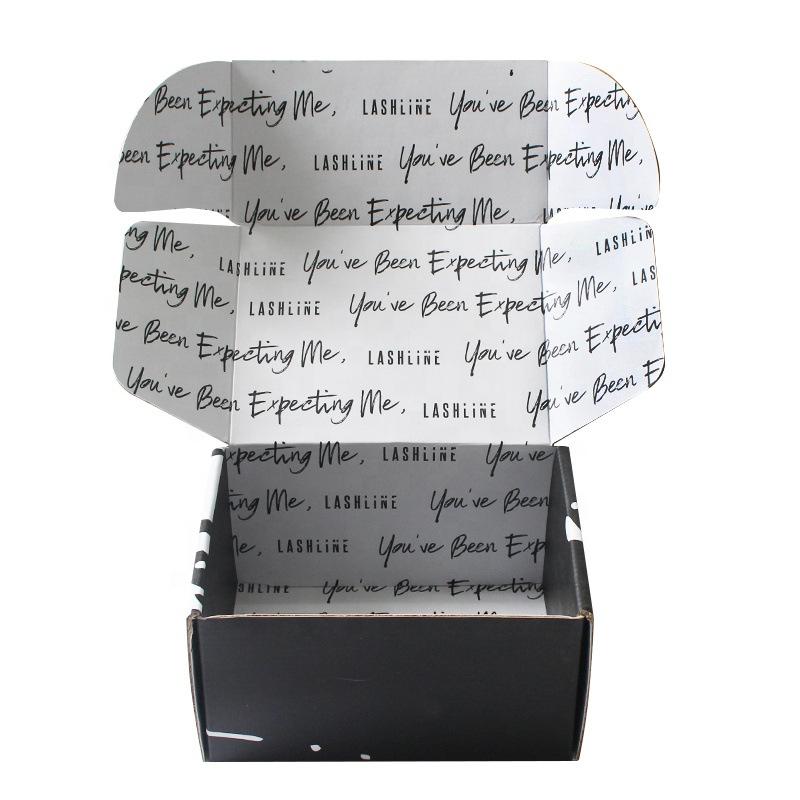 Been Expecting Me, LASHLiNE You've Been Expecting
Been Expecting Me, LASHLiNE You've Been Expecting Me,
You've Been Expecting Me,
ng Me, LASHLiNE You've Been Expecting Me, LASHLiN
pecting Me, LASHLiNE You've Been Expecting Me, LAS
ve Been Expecting Me, LASHLiNE You've Been Expecti
You've Been Expecting Me, LASHLiNE You've Been E
xpecting Me, LASHLiNE You've
ting Me, LASHLiNE You've Been
e, LASHLiNE You've Been Exp
SHLiNE You've Been Expecting